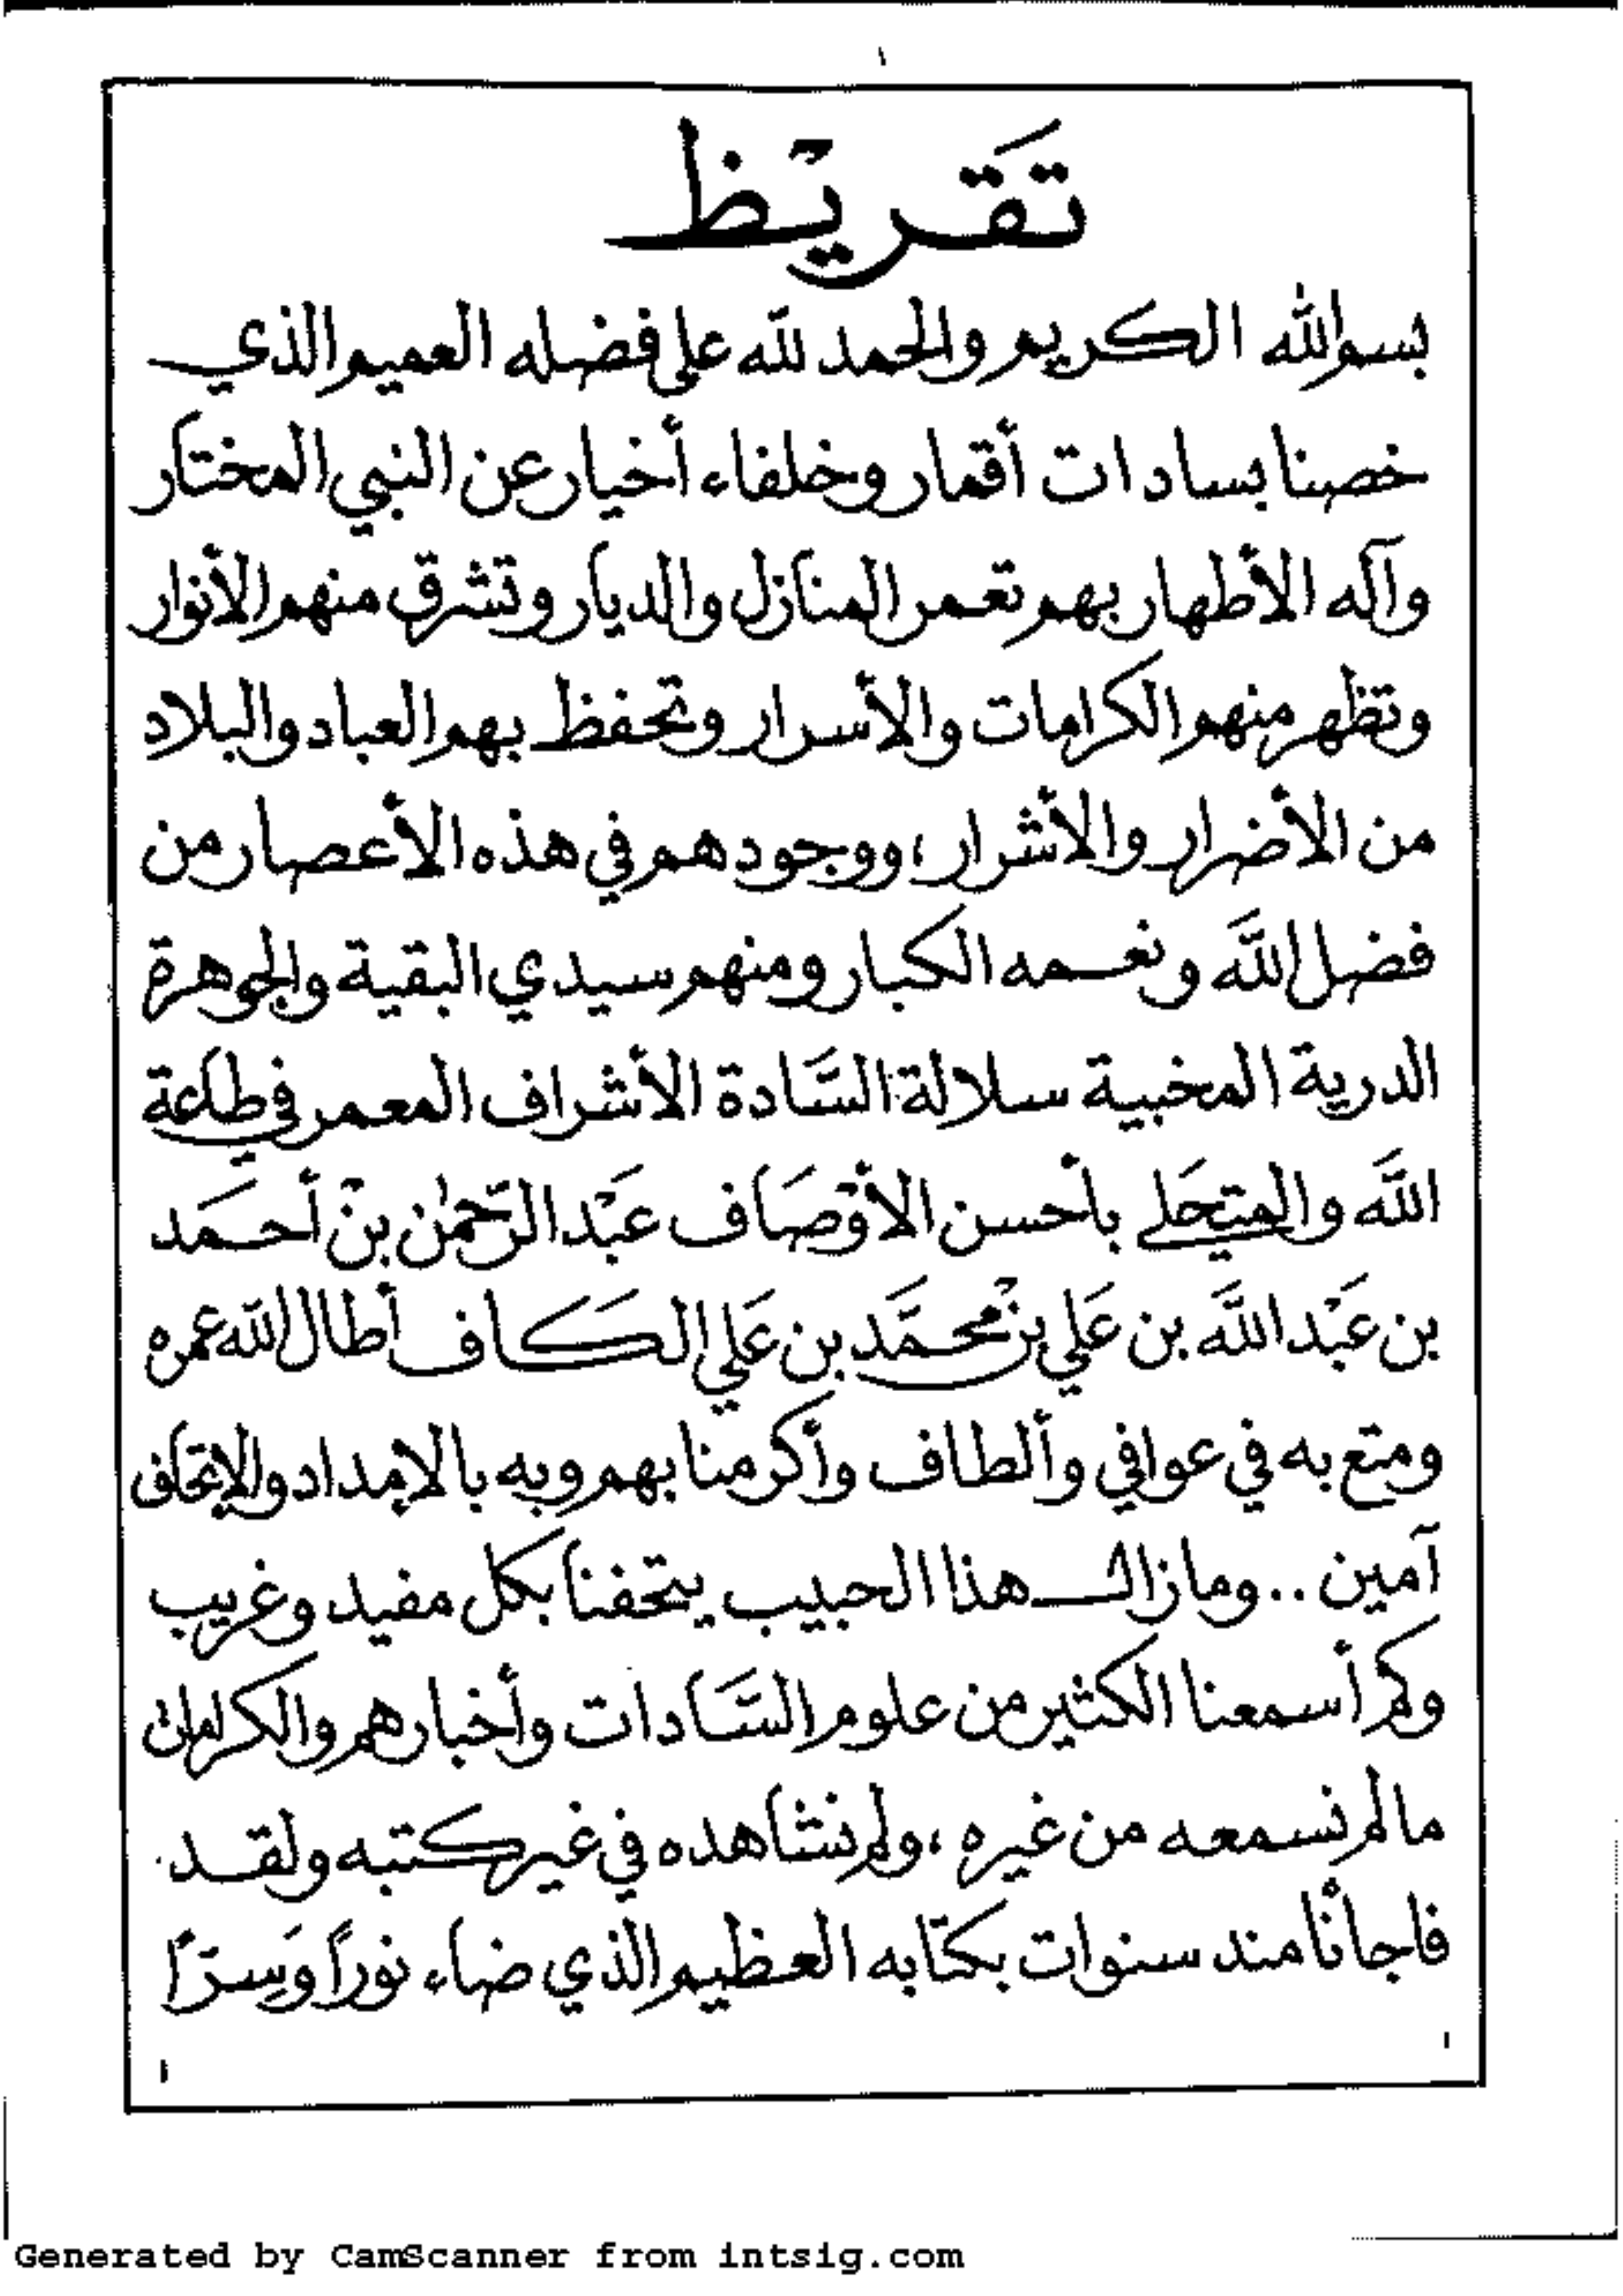 ١
تَقْرِيْظ
بسم الله الكريم والحمد لله على فضله العميم الذي
خصنا بسادات أقمار وخلفاء أخيار عن النبي المختار
وآله الأطهار بهم تعمر المنازل والديار وتشرق منهم الأنوار
وتظهر منهم الكرامات والأسرار وتحفظ بهم العباد والبلاد
من الأضرار والأشرار، ووجودهم في هذه الأعصار من
فضل اللَّه ونعمه الكبار ومنهم سيدي البقية والجوهرة
الدرية المخبية سلالة السَّادة الأشراف المعمر في طاعة
اللَّه والمتحَلي بأحسن الأوْصَاف عَبْد الرَّحمٰن بنْ أحمَد
بن عَبْد اللَّه بن عَلي بنْ محمَّد بن عَلي الكَاف أطال الله عمره
ومتع به في عوافي وألطاف وأكرمنا بهم وبه بالإمداد والإتحاف
آمين .. وما زال هذا الحبيب يتحفنا بكل مفيد وغريب
وكم أسمعنا الكثير من علوم السَّادات وأخبارهم والكرامات
ما لم نسمعه من غيره، ولم نشاهده في غير كتبه ولقد
فاجأنا منذ سنوات بكتابه العظيم الذي ضاء نوراً وَسِرّاً
Generated by CamScanner from intsig.com